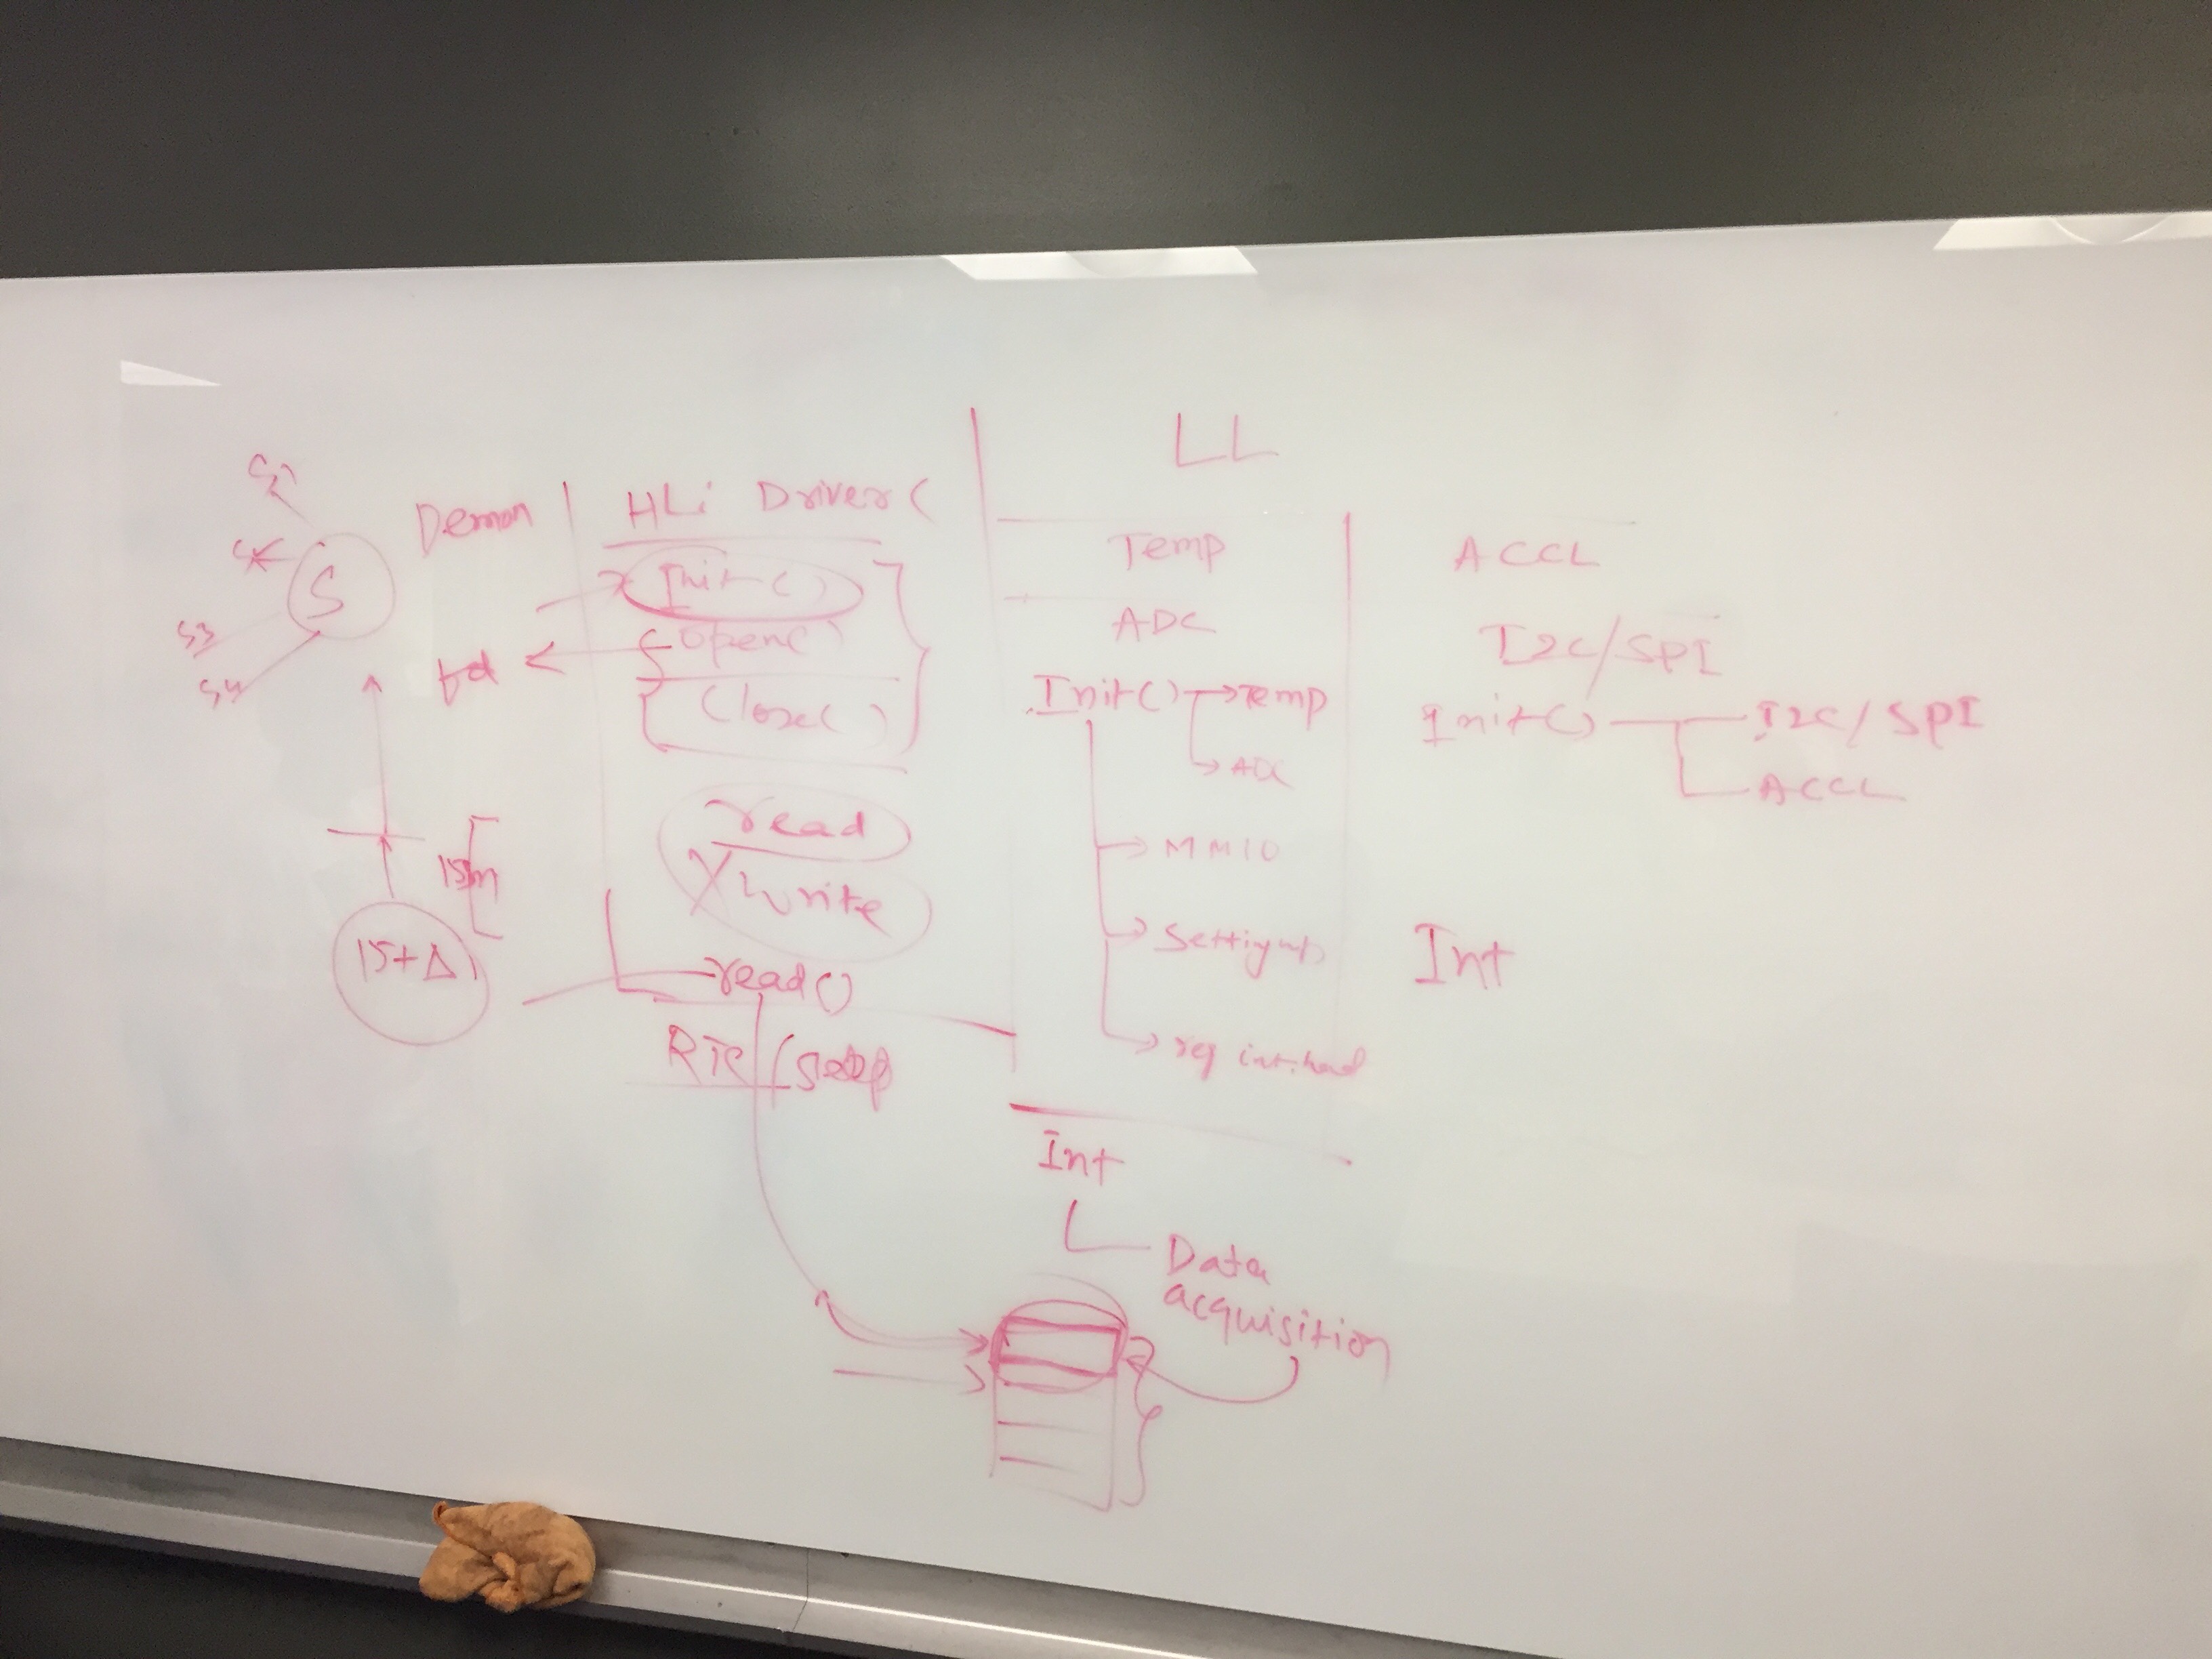 S1
S
S3
S4
Demon
fd
15m
15+Δ
HLi Driver (
Init()
open()
Close()
read
X Write
read()
LL
Temp
ADC
Init() → Temp
→ ADC
→ MMIO
→ reg int.hand
Int
Data
acquisition
ACCL
I2C/SPI
Init() I2C/SPI
ACCL
Int